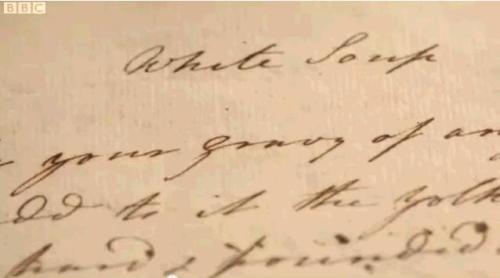 BBC
White Soup
your gravy of an
dd to it the yolk
hard & pounded